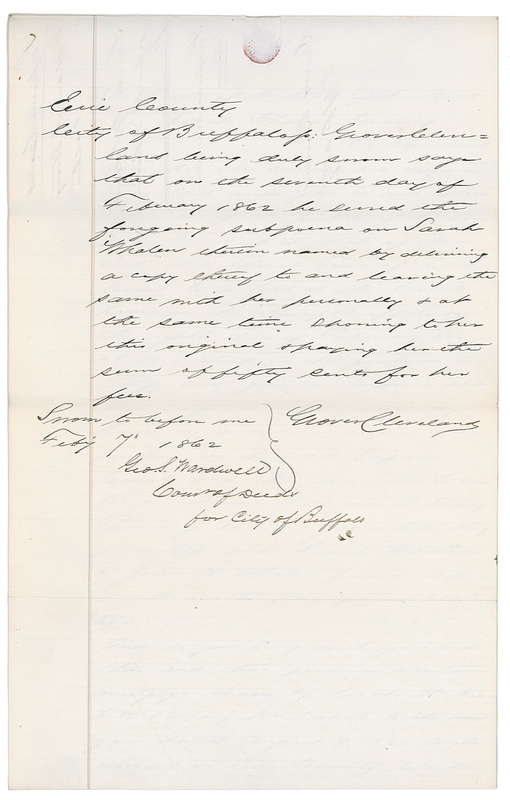 Erie County
City of Buffalo ss: Grover Cleve=
land being duly sworn says
that on the seventh day of
February 1862 he served the
foregoing subpoena on Sarah
Whalen therein named by delivering
a copy thereof to and leaving the
same with her personally & at
the same time showing to her
this original & paying her the
sum of fifty cents for her
fees.
Sworn to before me
Feby 7th 1862
Grover Cleveland
Geo. S. Wardwell
Comr of Deeds
for City of Buffalo